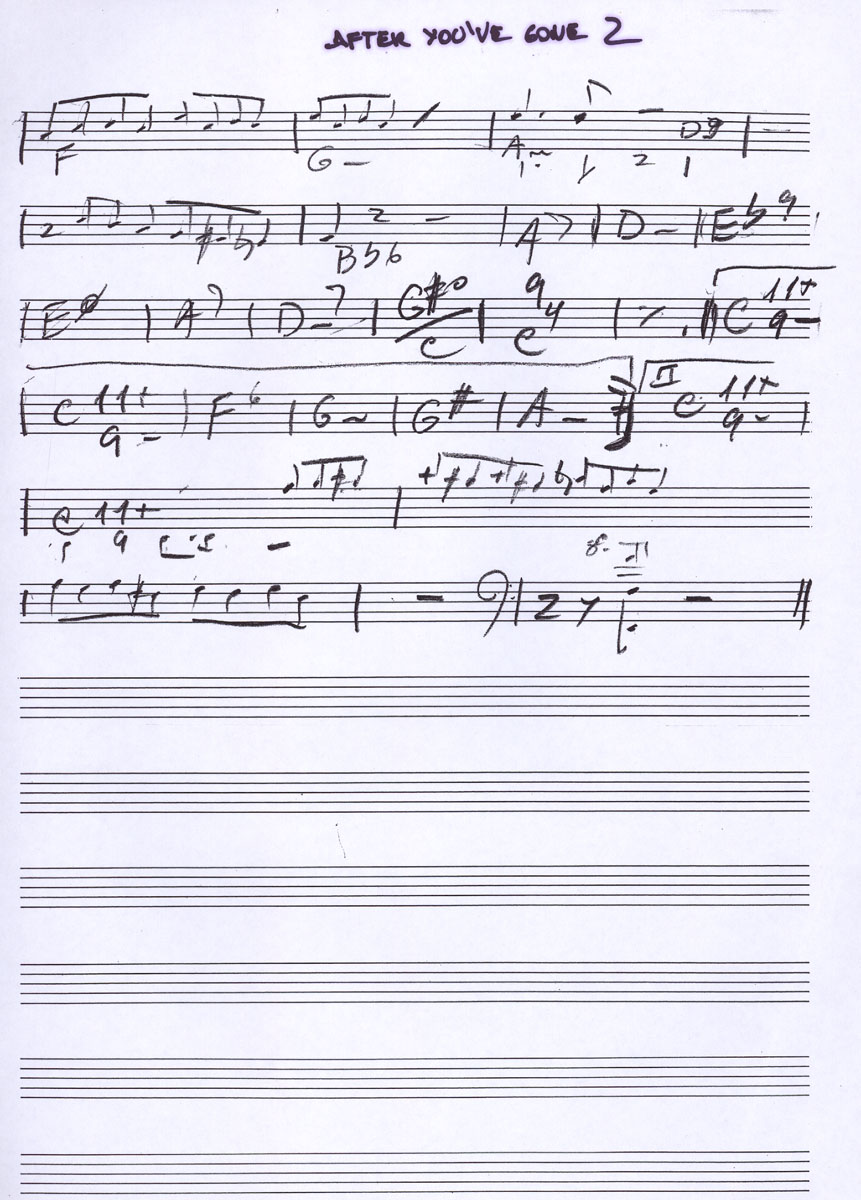 AFTER YOU'VE GONE 2
F G– A– D9
Bb6 A7 D– Eb9
Eø A7 D–7 G#o/C C 9 4 C 11+ 9–
C 11+ 9– F6 G– G# A– II C 11+ 9–
C 11+ 9